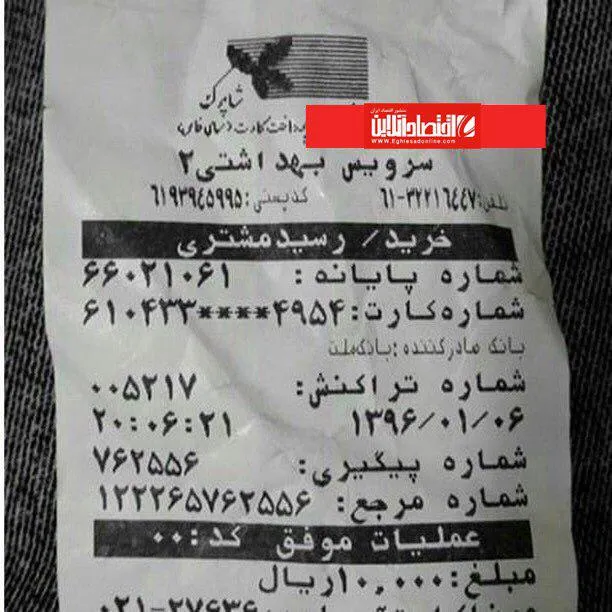 شاپرک
منشور اقتصاد ایران
اقتصادآنلاین
www.EghtesadOnline.com
پرداخت کارت
سرویس بهداشتی۲
تلفن:۰۶۱-۳۲۲۱۶۴۴۷ کدپستی:۶۱۹۳۹۴۵۹۹۵
خرید/ رسیدمشتری
شماره پایانه: ۶۶۰۲۱۰۶۱
شماره کارت:۶۱۰۴۳۳****۴۹۵۴
بانک صادرکننده:بانک‌ملت
شماره تراکنش: ۰۰۵۲۱۷
۱۳۹۶/۰۱/۰۶ ۲۰:۰۶:۲۱
شماره پیگیری: ۷۶۲۵۵۶
شماره مرجع: ۱۲۲۲۶۵۷۶۲۵۵۶
عملیات موفق کد:۰۰
مبلغ:۱۰,۰۰۰ریال
۰۲۱-۲۷۶۳۶